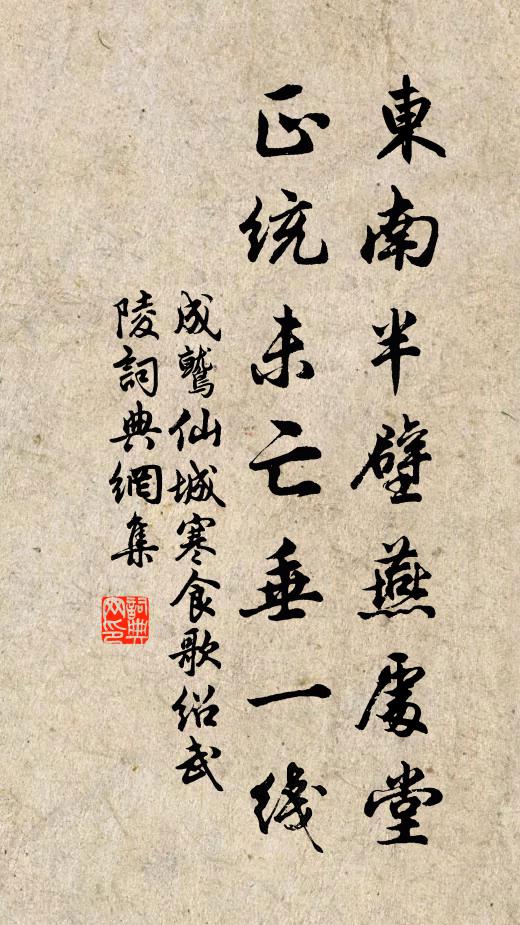 東南半壁燕處堂
正統未亡垂一綫
成鷲仙城寒食歌紹武
陵詞典網集
詞典
网印